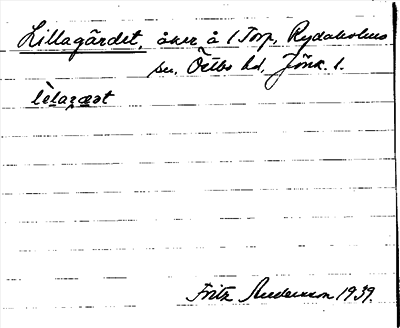 Lillagärdet, åker å 1 Torp, Rydaholms
sn, Östbo hd, Jönk. l.
lìlagæ̨ət
Fritz Andersson 1939.